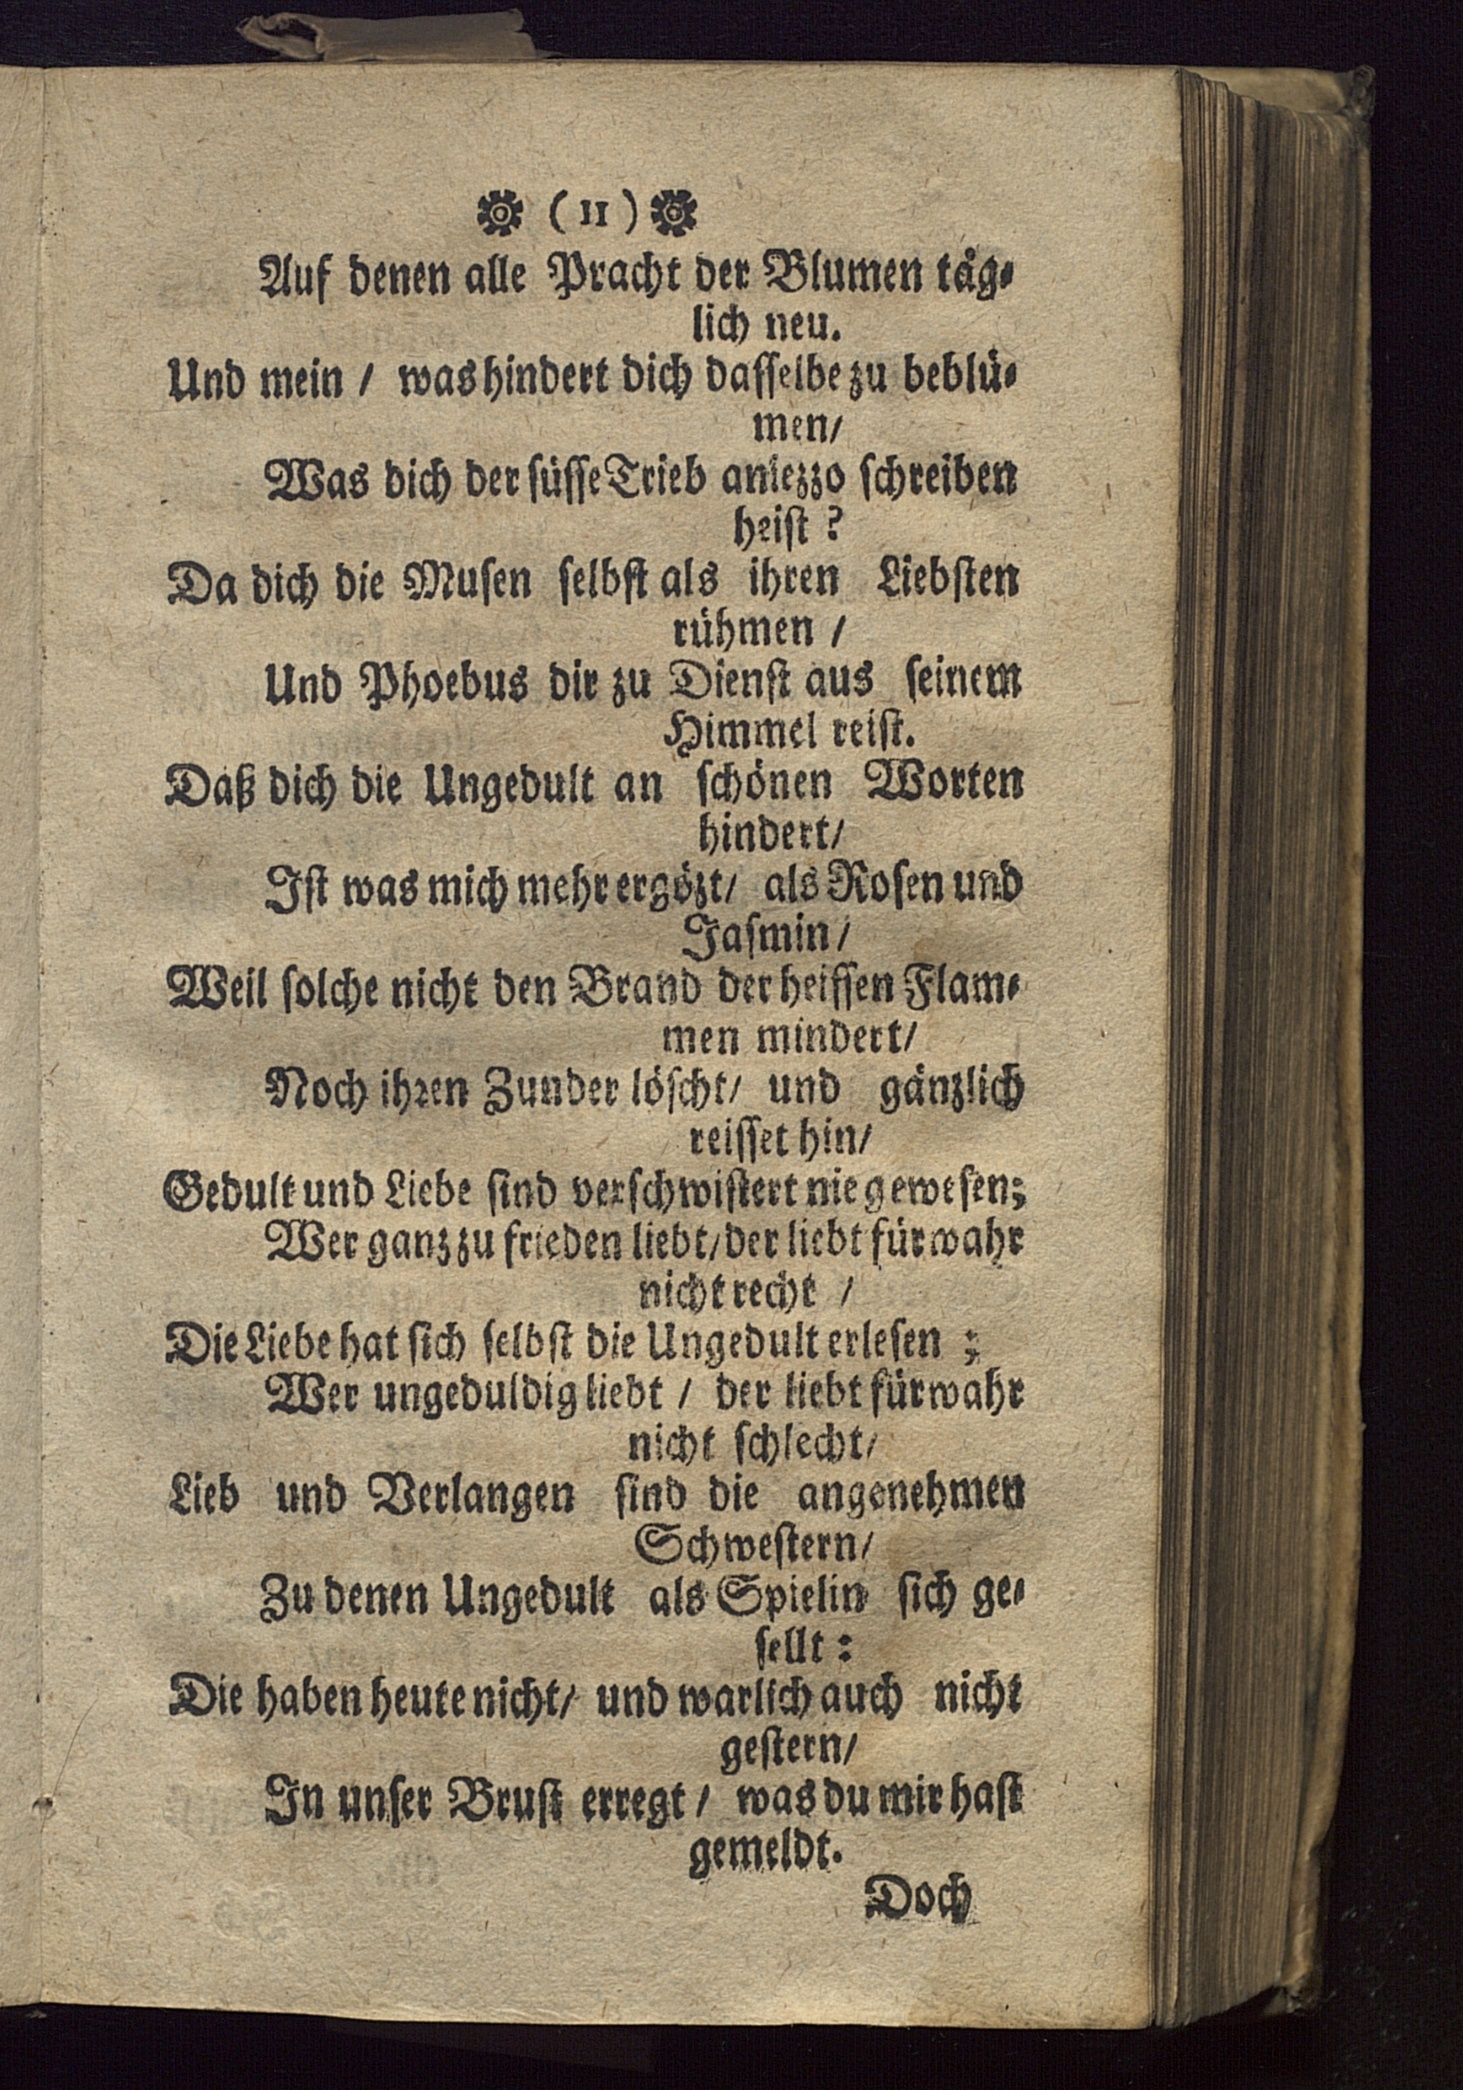 ( 11 )
Auf denen alle Pracht der Blumen täg-
lich neu.
Und mein / was hindert dich dasselbe zu beblü-
men/
Was dich der süsse Trieb aniezzo schreiben
heist ?
Da dich die Musen selbst als ihren Liebsten
rühmen /
Und Phoebus dir zu Dienst aus seinem
Himmel reist.
Daß dich die Ungedult an schönen Worten
hindert/
Ist was mich mehr ergözt/ als Rosen und
Jasmin/
Weil solche nicht den Brand der heissen Flam-
men mindert/
Noch ihren Zunder löscht/ und gänzlich
reisset hin/
Gedult und Liebe sind verschwistert nie gewesen;
Wer ganz zu frieden liebt/ der liebt fürwahr
nicht recht /
Die Liebe hat sich selbst die Ungedult erlesen ;
Wer ungeduldig liebt / der liebt fürwahr
nicht schlecht/
Lieb und Verlangen sind die angenehmen
Schwestern/
Zu denen Ungedult als Spielin sich ge-
sellt :
Die haben heute nicht/ und warlich auch nicht
gestern/
In unser Brust erregt / was du mir hast
gemeldt.
Doch